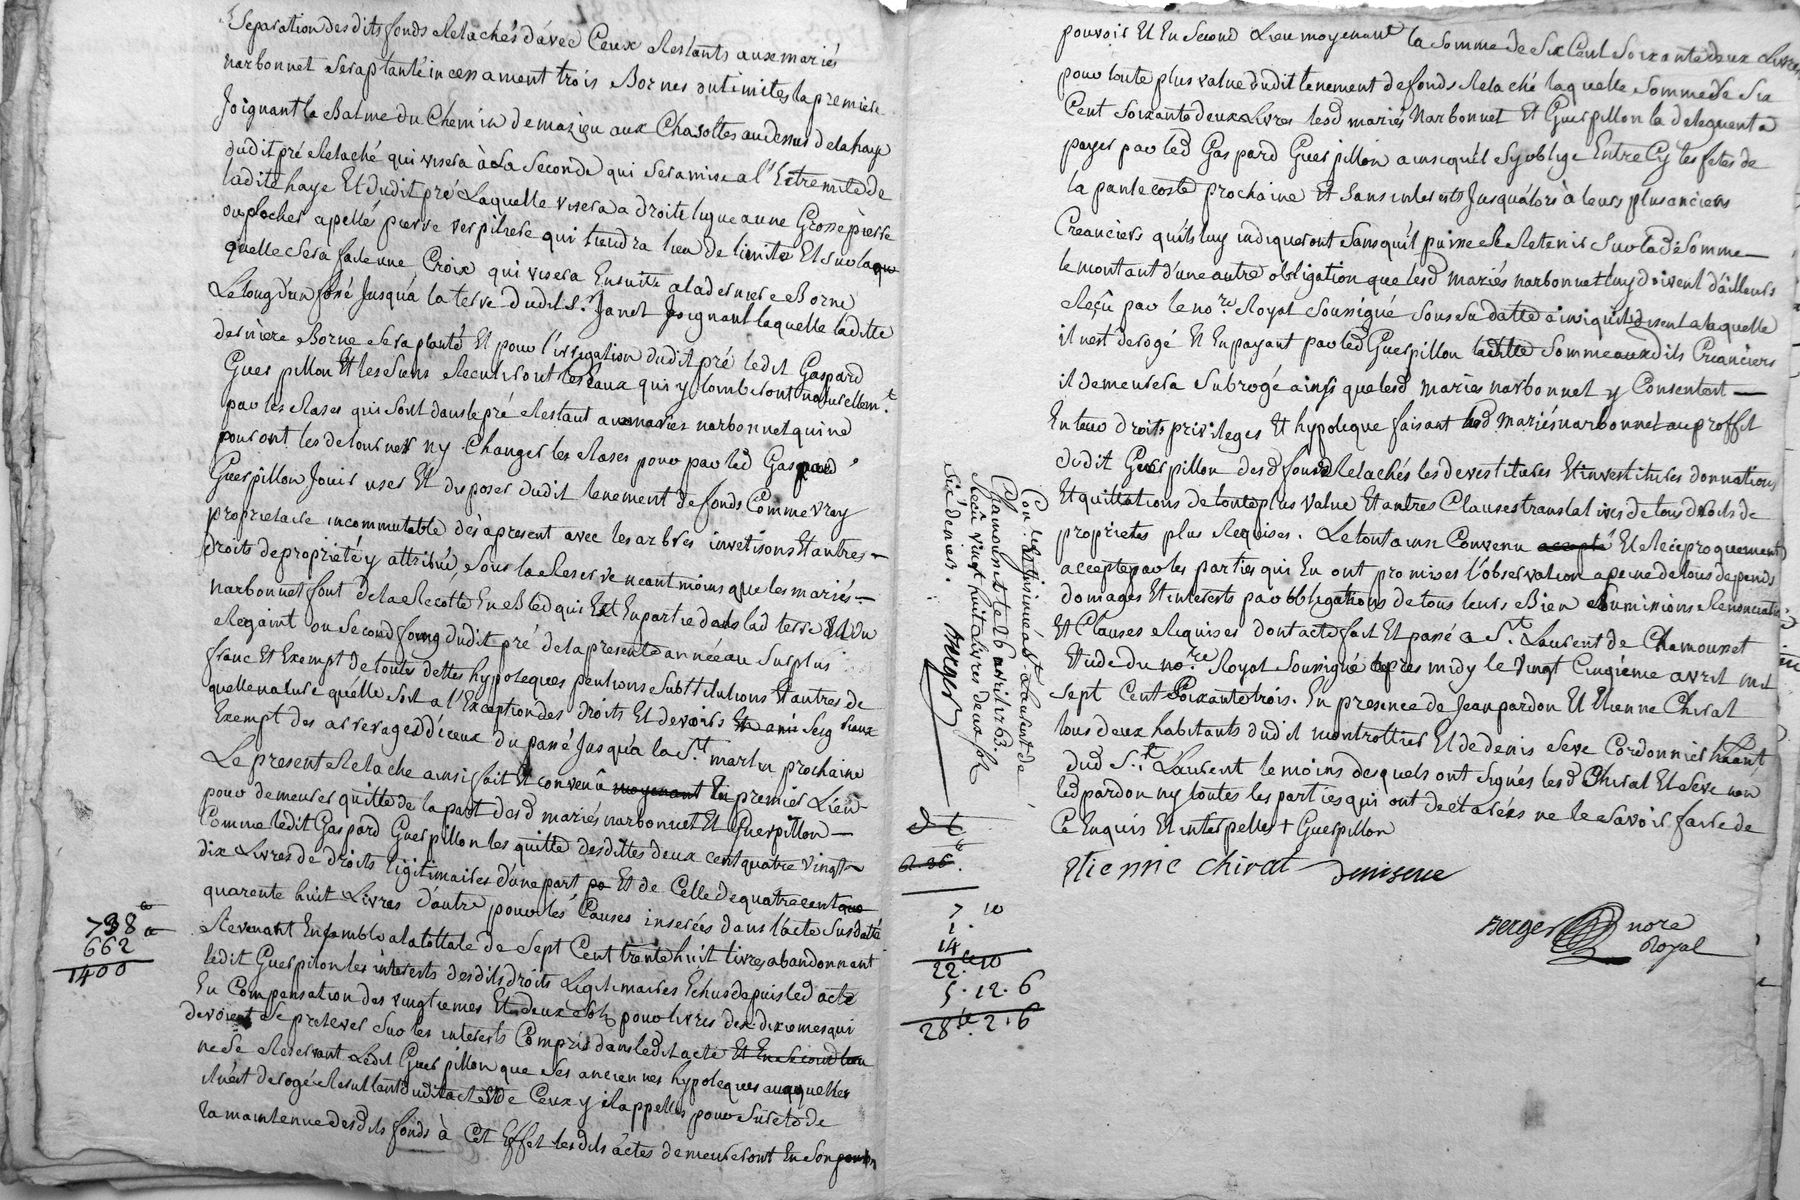 Separation desdits fonds Relachés d'avec Ceux Restants aux mariés
narbonnet sera planté incessament trois Bornes ou limites la premiere
Joignant la Balme du Chemin de mazieu aux Chasoltes au dessus de la haye
dudit pré Relaché qui visera à La Seconde qui sera mise a l'Extremité de
ladite haye Et dudit pré Laquelle visera a droite ligne a une Grosse pierre
ou rocher apellés pierre verpiliere qui tiendra lieu de limite Et sur laqu
quelle sera faite une Croix qui visera Ensuitte a la derniere Borne
Le long d'un fossé Jusqu'a la terre dudit Sr. Janet Joignant laquelle laditte
derniere Borne sera planté Et pour l'irrigation dudit pré ledit Gaspard
Guerpillon Et les siens Recevront les Eaux qui y tomberont naturellemt.
par les Rases qui sont dans le pré Restant aux mariés narbonnet qui ne
pouront les detourner ny Changer les Rases pour par led Gaspard
Guerpillon Jouir user Et disposer dudit tenement de fonds Comme vray
proprietaire incommutable dès apresent avec les arbres investisons Et autres
droits de proprieté y attribué, Sous la Reserve neantmoins que les mariés
narbonnet font de la Recolte En Bled qui Est En partie dans lad terre Et du
Regaint ou second foing dudit pré de la presente année au surplus
franc Et Exempt de toutes dettes hypoteques pentions substitutions Et autres de
quelle nature qu'elle soit a l'Exception des droits Et devoirs Seig riaux
Exempt des arrerages d'iceux du passé Jusqu'a la St. martin prochaine
Le present Relache ainsi fait Et convenû moyenant En premier Lieu
pour demeurer quitte de la part desd mariés narbonnet Et Guerpillon
Comme ledit Gaspard Guerpillon les quitte desdittes deux cent quatre vingt
dix Livres de droits légitimaires d'une part Et de Celle de quatre cent
quarente huit Livres d'autre pour les Causes inserées dans l'acte susdaté
Revenant Ensemble a la tottale de Sept Cent trente huit livres abandonnant
ledit Guerpillon les interests desdits droits Legitimaires Echus depuis led acte
En Compensation des vingtiemes Et deux sols pour livres des dixiemes qui
devoient se prelever sur les interests Compris dans ledit acte Et En second lieu
ne se Reservant Ledit Guerpillon que ses anciennes hypoteques auxquelles
il n'est derogé Resultant dudit acte Et de Ceux y Rappellés pour sureté de
la maintenue desdits fonds à Cet Effet lesdits actes demeureront En son
738
662
1400
Con.lé Et insinué à St. Laurent de
Chamousset le 26 avril 1763.
Recû vingt huit livres deux sols
Six deniers.
Berger
7 10
1.
14
22 10
5. 12. 6
28. 2. 6
pouvoir Et En Second Lieu moyenant la somme de Six Cent Soixante deux Livres
pour toute plus value dudit tenement de fonds Relaché laquelle Somme de Six
Cent Soixante deux Livres lesd mariés Narbonnet Et Guerpillon la deleguent à
payer par led Gaspard Guerpillon ainsi qu'il s'y oblige Entre Cy les fetes de
la pantecoste prochaine Et sans interests Jusqu'alors à leurs plus anciens
Creanciers qu'ils luy indiqueront sans qu'il puisse se Retenir sur lade Somme
le montant d'une autre obligation que lesd mariés narbonnet luy doivent d'ailleurs
Reçû par le nore. Royal soussigné sous sa datte ainsi qu'ils disent a laquelle
il n'est derogé Et En payant par led Guerpillon laditte Somme auxdits Creanciers
il demeurera subrogé ainsi que lesd mariés narbonnet y Consentent
En leur droits privileges Et hypoteque faisant lesd mariés narbonnet au proffit
dudit Guerpillon desd fonds Relachés les devestitures Et investitures donnations
Et quittations de toute plus value Et autres Clauses translatives de tous droits de
proprietés plus Requises. Le tout ainsi Convenu accepté Et Reciproquement
accepté par les parties qui En ont promises l'observation a peine de tous depends
domages Et interests par obligations de tous leurs Bien soumissions Renonciations
Et Clauses Requises dont acte fait Et passé a St. Laurent de Chamousset
Etude du nore Royal soussigné après midy le vingt Cinqieme avril mil
Sept Cent Soixante trois. En presence de Jean pardon Et Etienne Chirat
tous deux habitants dudit montrottier Et de denis Seve Cordonnier habitant
dud St. Laurent le moins desquels ont signés lesd Chirat Et Seve non
led pardon ny toutes les parties qui ont declarées ne le savoir faire de
Ce Enquis Et interpellés + Guerpillon
Etienne Chirat
Deniseve
Berger nore
Royal